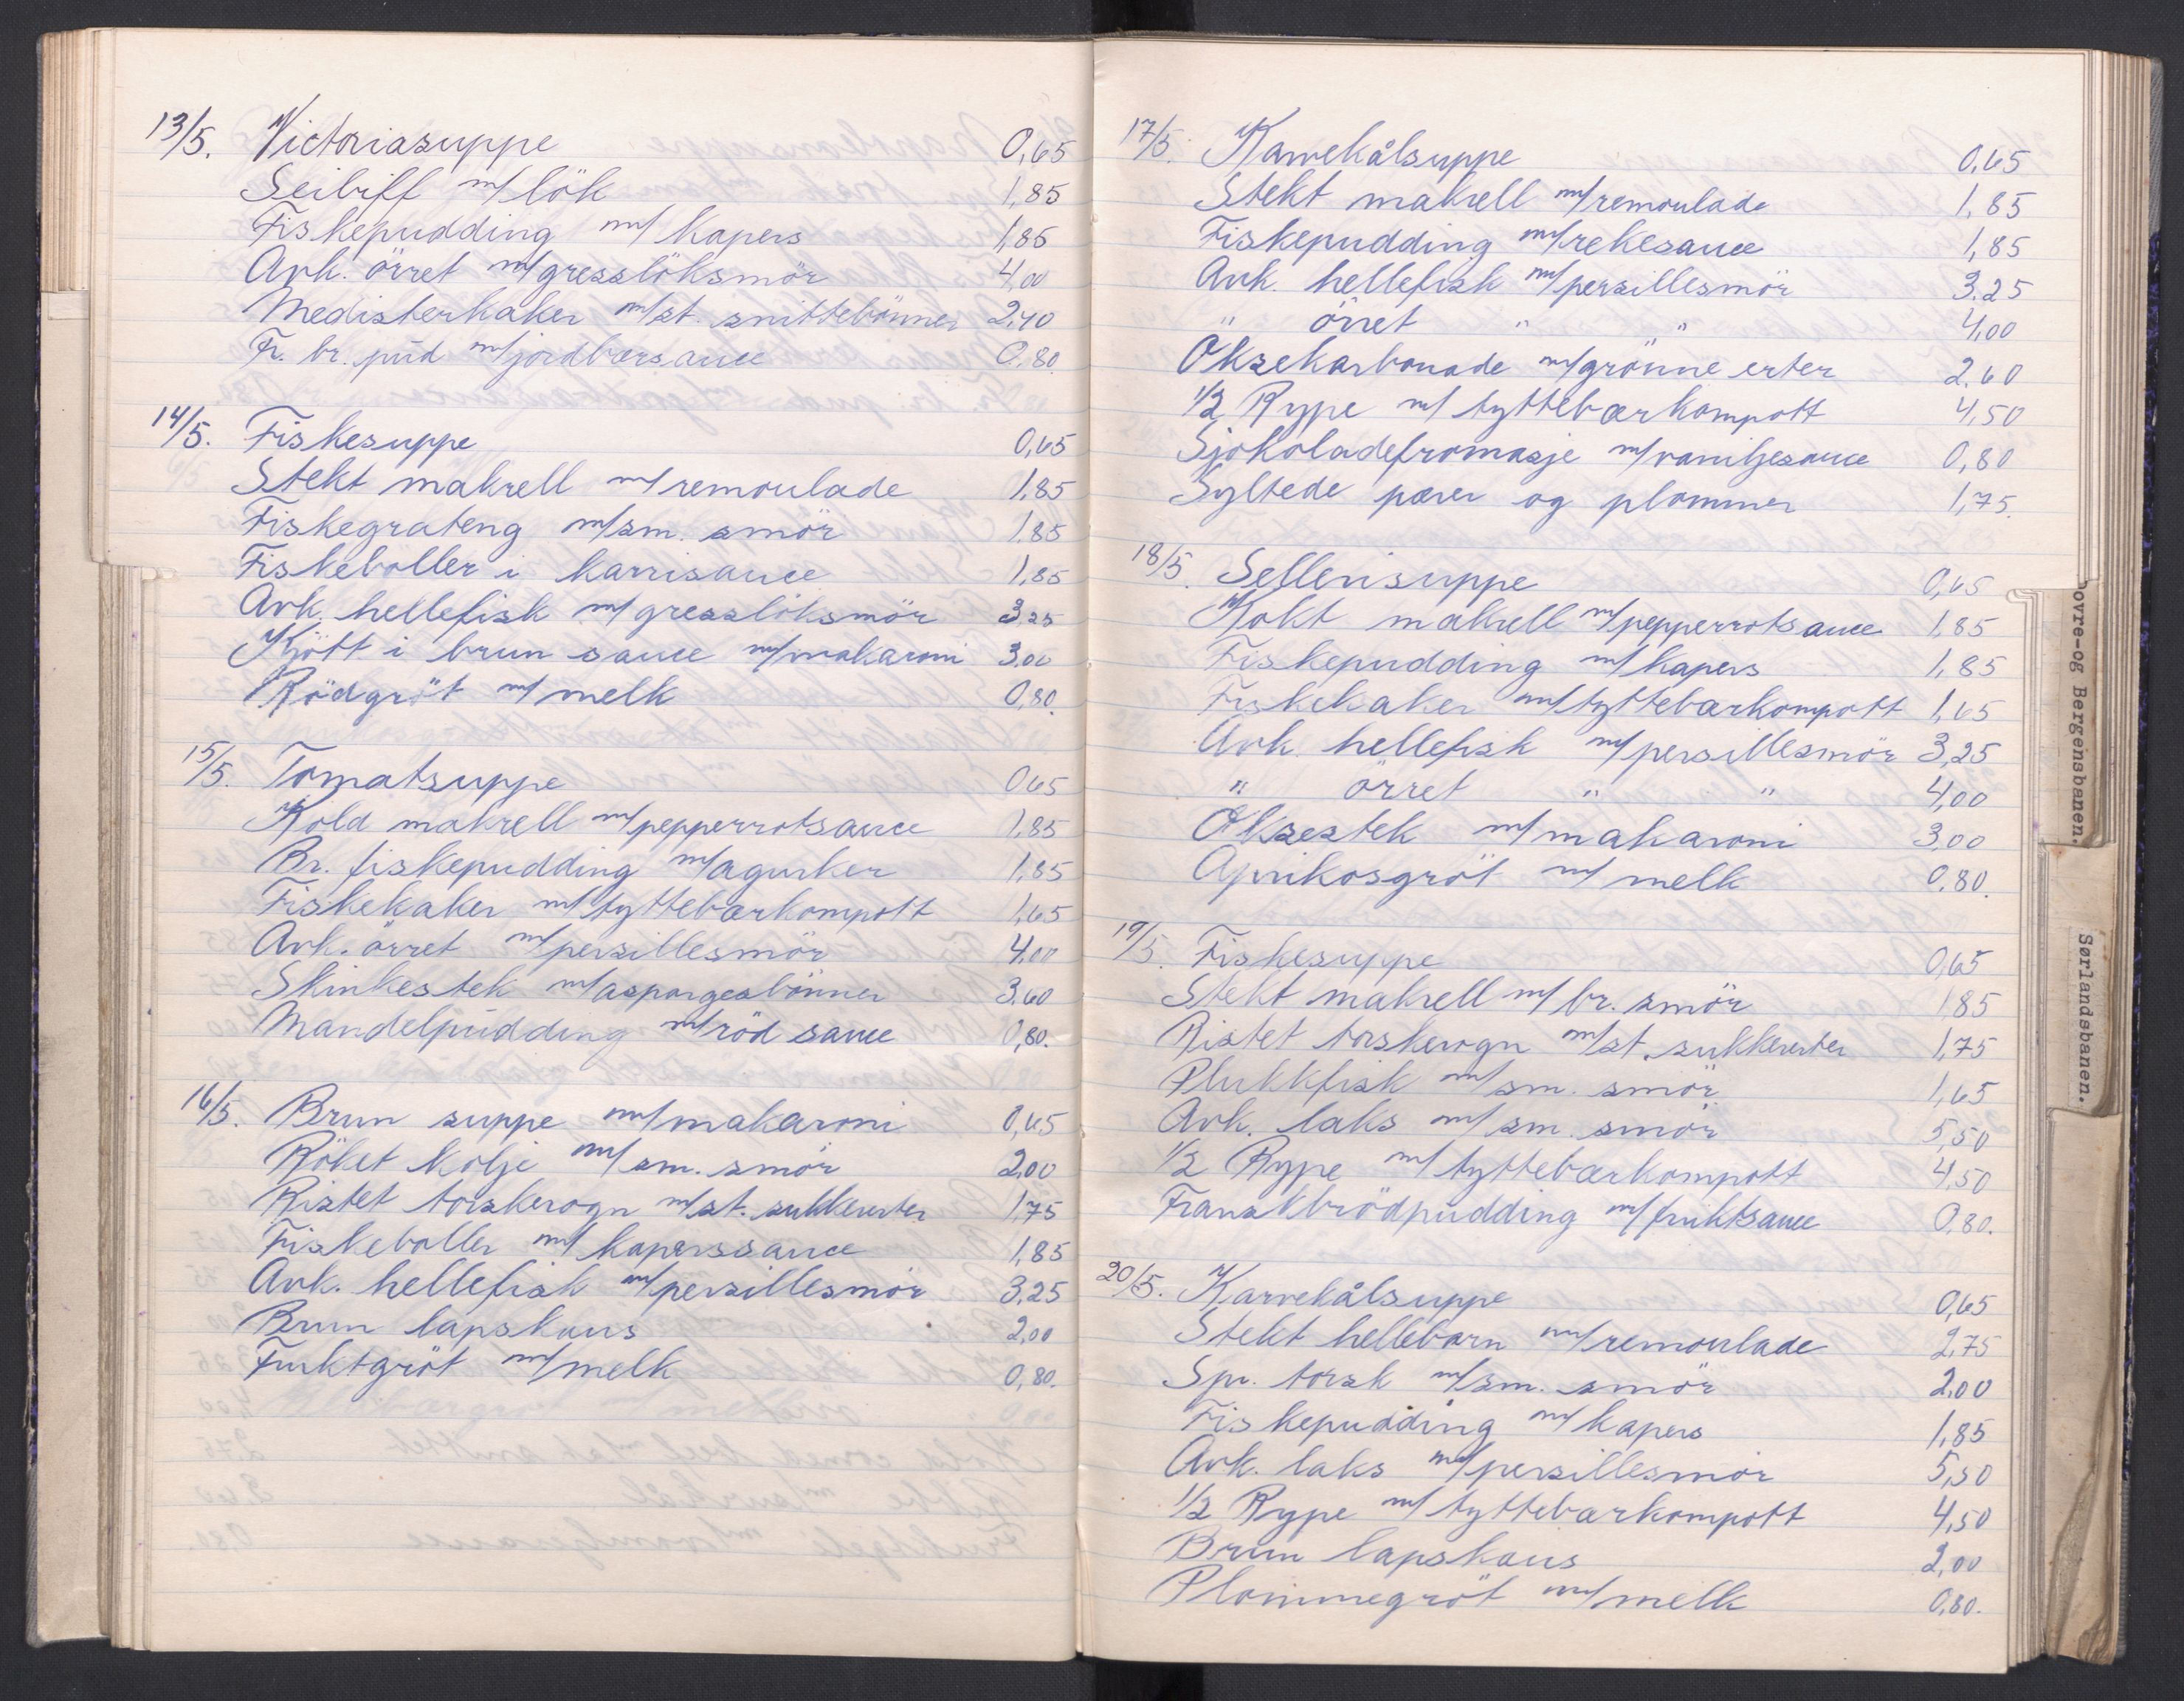 13/5. Victoriasuppe 0,65
Seibiff m/lök 1,85
Fiskepudding m/kapers 1,85
Avk. örret m/gresslöksmör 4,00
Medisterkaker m/st. snittebönner 2,40
Fr. br. pud m/jordbærsauce 0,80.
14/5. Fiskesuppe 0,65
Stekt makrell m/remoulade 1,85
Fiskegrateng m/sm. smör 1,85
Fiskeboller i karrisauce 1,85
Avk. hellefisk m/gresslöksmör 3,25
Kjött i brun sauce m/makaroni 3,00
Rödgröt m/melk 0,80.
15/5. Tomatsuppe 0,65
Kold makrell m/pepperrotsauce 1,85
Br. fiskepudding m/agurker 1,85
Fiskekaker m/tyttebærkompott 1,65
Avk. örret m/persillesmör 4,00
Skinkestek m/aspargesbönner 3.60
Mandelpudding m/röd sauce 0,80.
16/5. Brun suppe m/makaroni 0,65
Röket kolje m/sm. smör 2,00
Ristet torskerogn m/st. sukkererter 1,75
Fiskeboller m/kaperssauce 1,85
Avk. hellefisk m/persillesmör 3,25
Brun lapskaus 2,00
Fruktgröt m/melk 0,80.
17/5. Karvekålsuppe 0,65
Stekt makrell m/remoulade 1,85
Fiskepudding m/rekesauce 1,85
Avk. hellefisk m/persillesmör 3.25
" örret " " 4,00
Oksekarbonade m/grönne erter 2.60
1/2 Rype m/tyttebærkompott 4,50
Sjokoladefromasje m/vaniljesauce 0,80
Syltede pærer og plommer 1,75.
18/5. Sellerisuppe 0,65
Kokt makrell m/pepperrotsauce 1,85
Fiskepudding m/kapers 1,85
Fiskekaker m/tyttebærkompott 1,65
Avk. hellefisk m/persillesmör 3,25
" örret " " 4,00
Oksestek m/makaroni 3,00
Aprikosgröt m/melk 0,80.
19/5. Fiskesuppe 0,65
Stekt makrell m/br. smör 1,85
Ristet torskerogn m/st. sukkererter 1,75
Plukkfisk m/sm. smör 1,65
Avk. laks m/sm. smör 5,50
1/2 Rype m/tyttebærkompott 4,50
Franskbrödpudding m/fruktsauce 0,80.
20/5. Karvekålsuppe 0,65
Stekt hellebarn m/remoulade 2,75
Spr. torsk m/sm. smör 2,00
Fiskepudding m/kapers 1,85
Avk. laks m/persillesmör 5,50
1/2 Rype m/tyttebærkompott 4,50
Brun lapskaus 2,00
Plommegröt m/melk 0,80.
ovre-og Bergensbanen.
Sørlandsbanen.